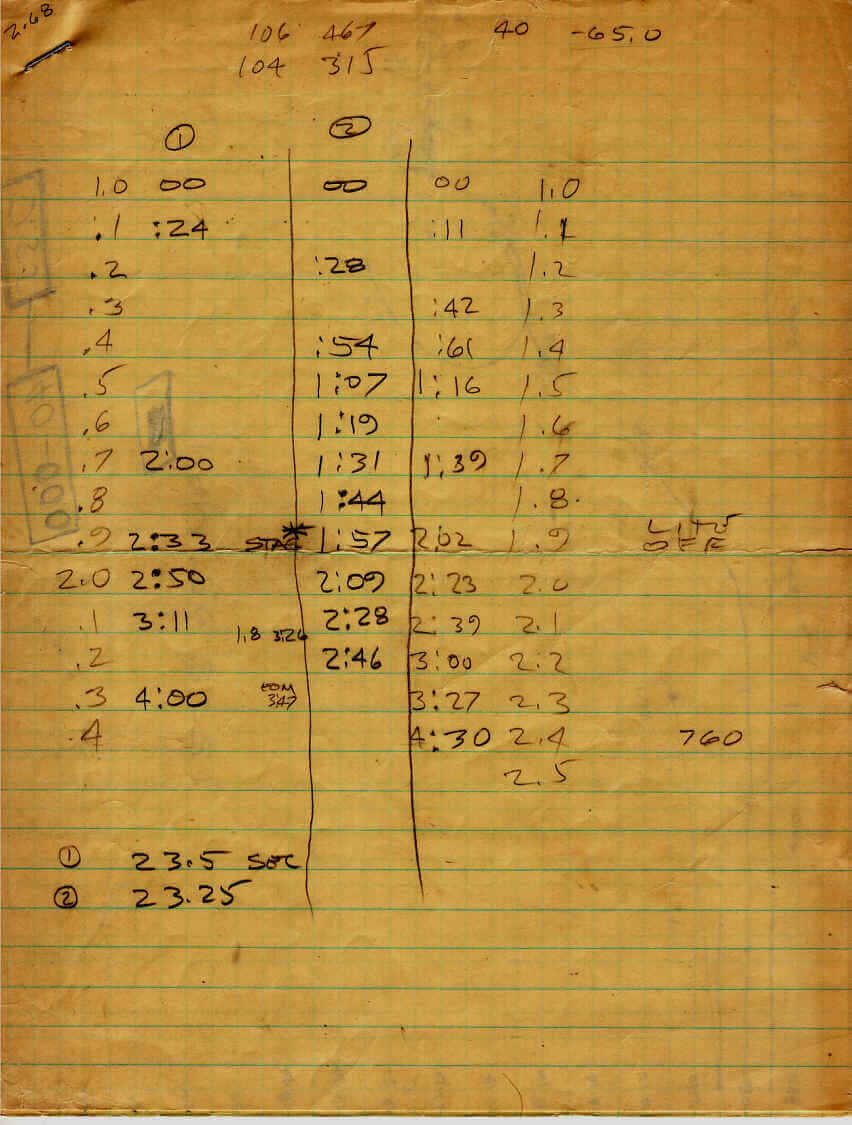 2.68
106 467 40 -65.0
104 315
① ②
1.0 00 00 00 1.0
.1 :24 :11 1.1
.2 :28 1.2
.3 :42 1.3
.4 :54 :61 1.4
.5 1:07 1:16 1.5
.6 1:19 1.6
.7 2:00 1:31 1:39 1.7
.8 1:44 1.8
.9 2:33 STAG * 1:57 2:02 1.9 LITE
OFF
2.0 2:50 2:09 2:23 2.0
.1 3:11 2:28 2:39 2.1
1.8 3:26
.2 2:46 3:00 2.2
.3 4:00 COM 3:27 2.3
347
.4 4:30 2.4 760
2.5
① 23.5 SEC
② 23.25